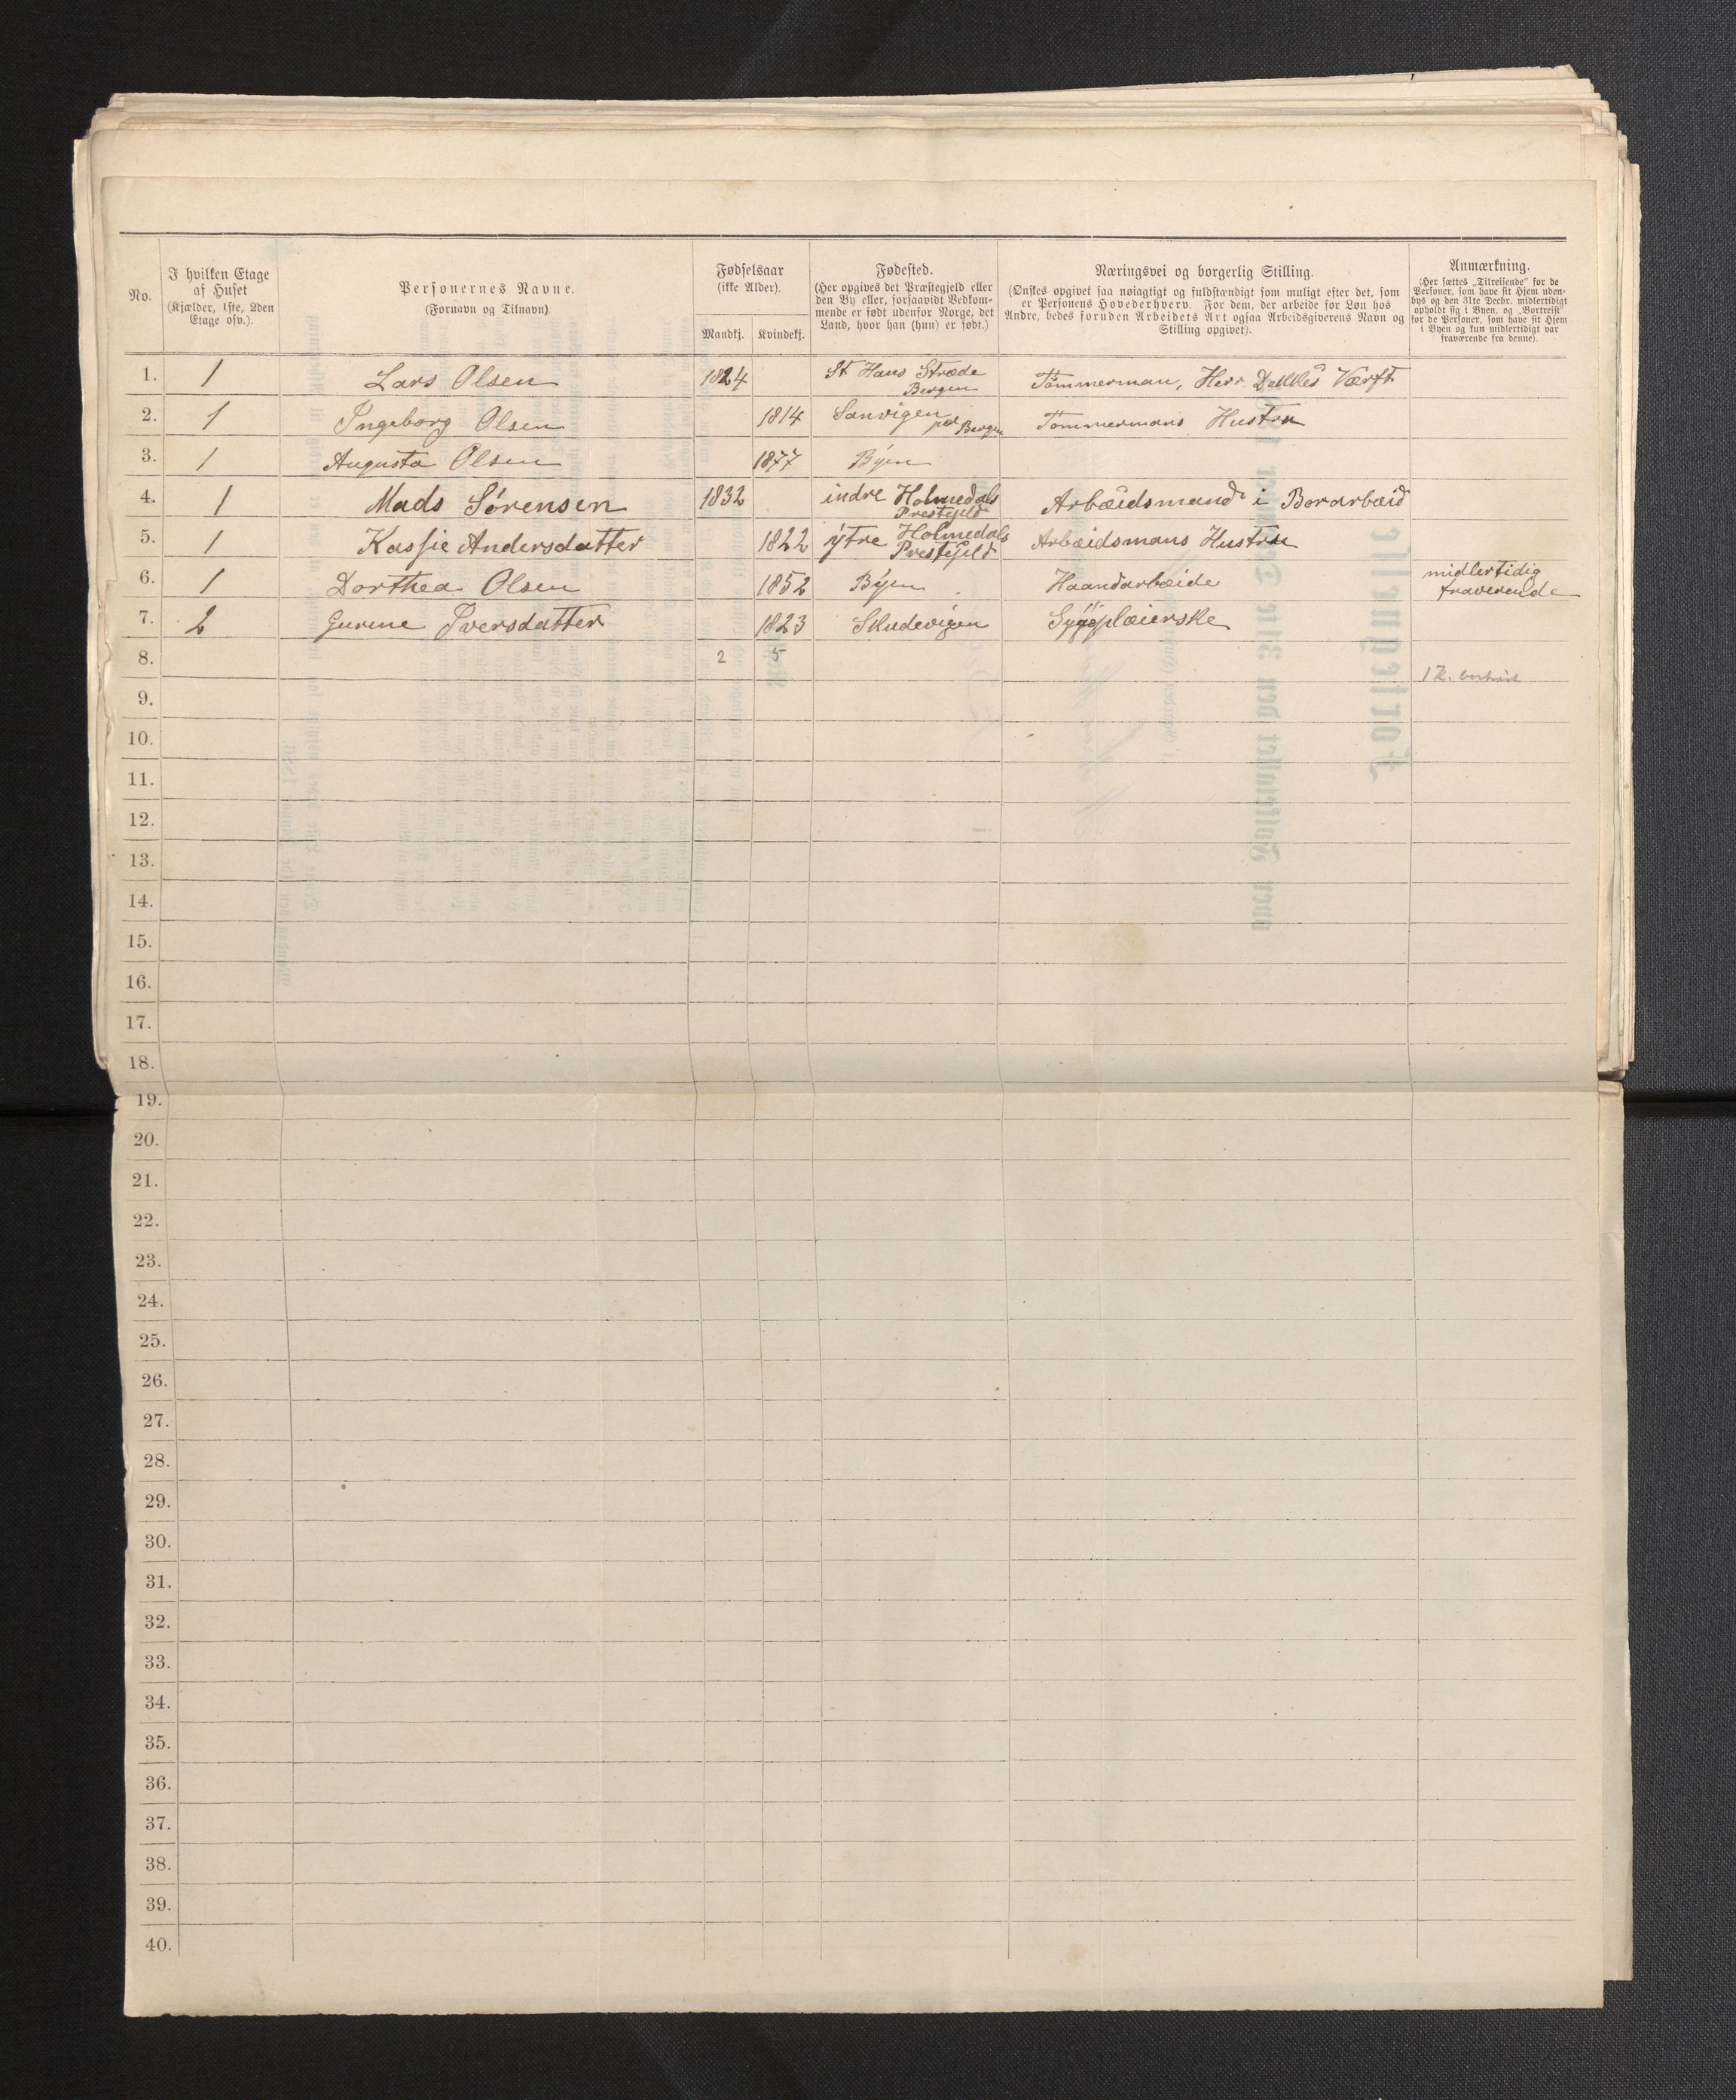 No.
I hvilken Etage
af Huset
(Kjælder, 1ste, 2den
Etage osv.).
Personernes Navne.
(Fornavn og Tilnavn)
Fødselsaar
(ikke Alder).
Mandkj. Kvindekj.
Fødested.
(Her opgives det Præstegjeld eller
den By eller, forsaavidt Vedkom-
mende er født udenfor Norge, det
Land, hvor han (hun) er født.)
Næringsvei og borgerlig Stilling.
(Ønskes opgivet saa nøiagtigt og fuldstændigt som muligt efter det, som
er Personens Hovederhverv. For dem, der arbeide for Løn hos
Andre, bedes foruden Arbeidets Art ogsaa Arbeidsgiverens Navn og
Stilling opgivet).
Anmærkning.
(Her sættes „Tilreisende“ for de
Personer, som have sit Hjem uden-
bys og den 31te Decbr. midlertidigt
opholdt sig i Byen, og „Bortreist“
for de Personer, som have sit Hjem
i Byen og kun midlertidigt var
fraværende fra denne).
1. 1 Lars Olsen 1824 St Hans Stræde Bergen Tömmerman, Herr Værft
2. 1 Ingeborg Olsen 1814 Sanvigen paa Bergen Tömmermans Hustru
3. 1 Augusta Olsen 1877 Býen
4. 1 Mads Sörensen 1832 indre Holmedals Prestejeld Arbeidsmand i Borarbeid
5. 1 Kassie Andersdatter 1822 ýtre Holmedals Prestejeld Arbeidsmans Hustru
6. 1 Dorthea Olsen 1852 Býen Haandarbeide midlertidig fraverende
7. 2 Gurine Iversdatter 1823 Skudevigen Sýgeplæierske
8. 2 5
1 K. bortreist
9.
10.
11.
12.
13.
14.
15.
16.
17.
18.
19.
20.
21.
22.
23.
24.
25.
26.
27.
28.
29.
30.
31.
32.
33.
34.
35.
36.
37.
38.
39.
40.